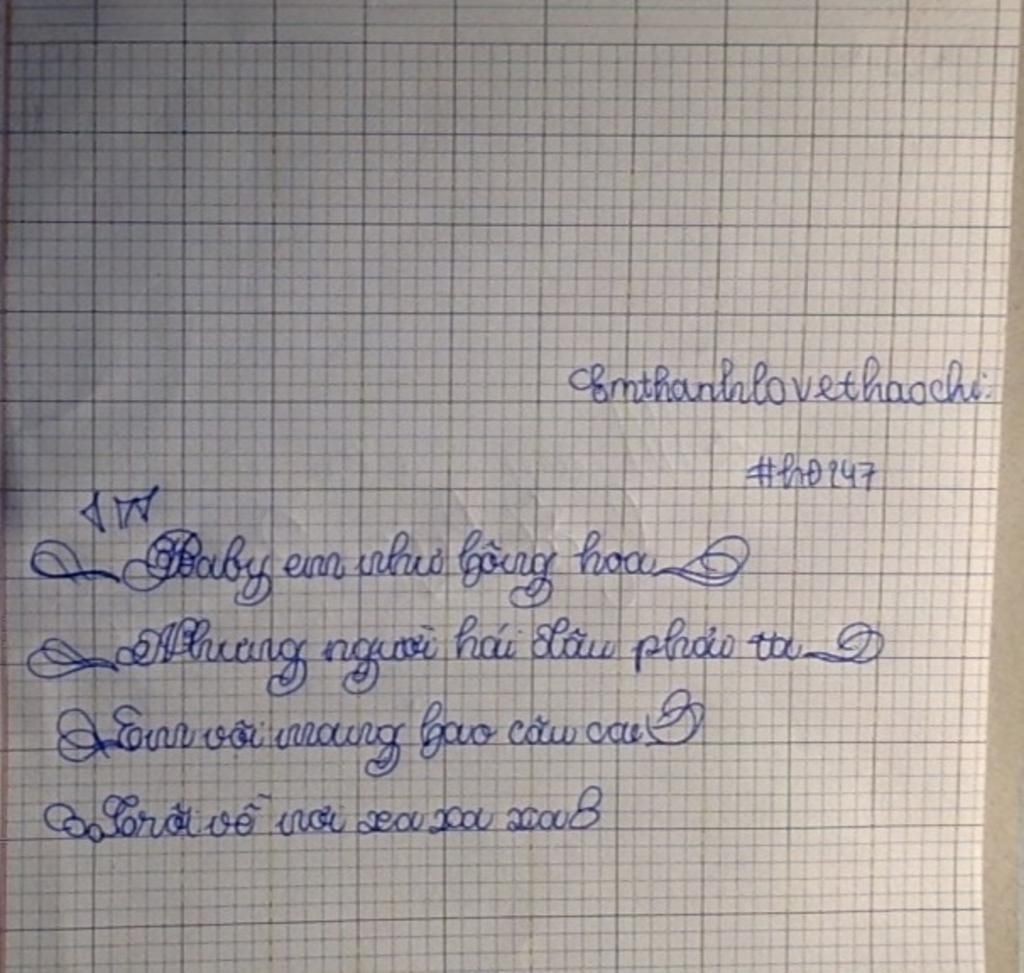 Emthanhlovethaochi
#hđ247
Baby em như bông hoa
Nhưng người hái đâu phải ta
Em vội mang bao câu ca
Trở về nơi xa xa xa